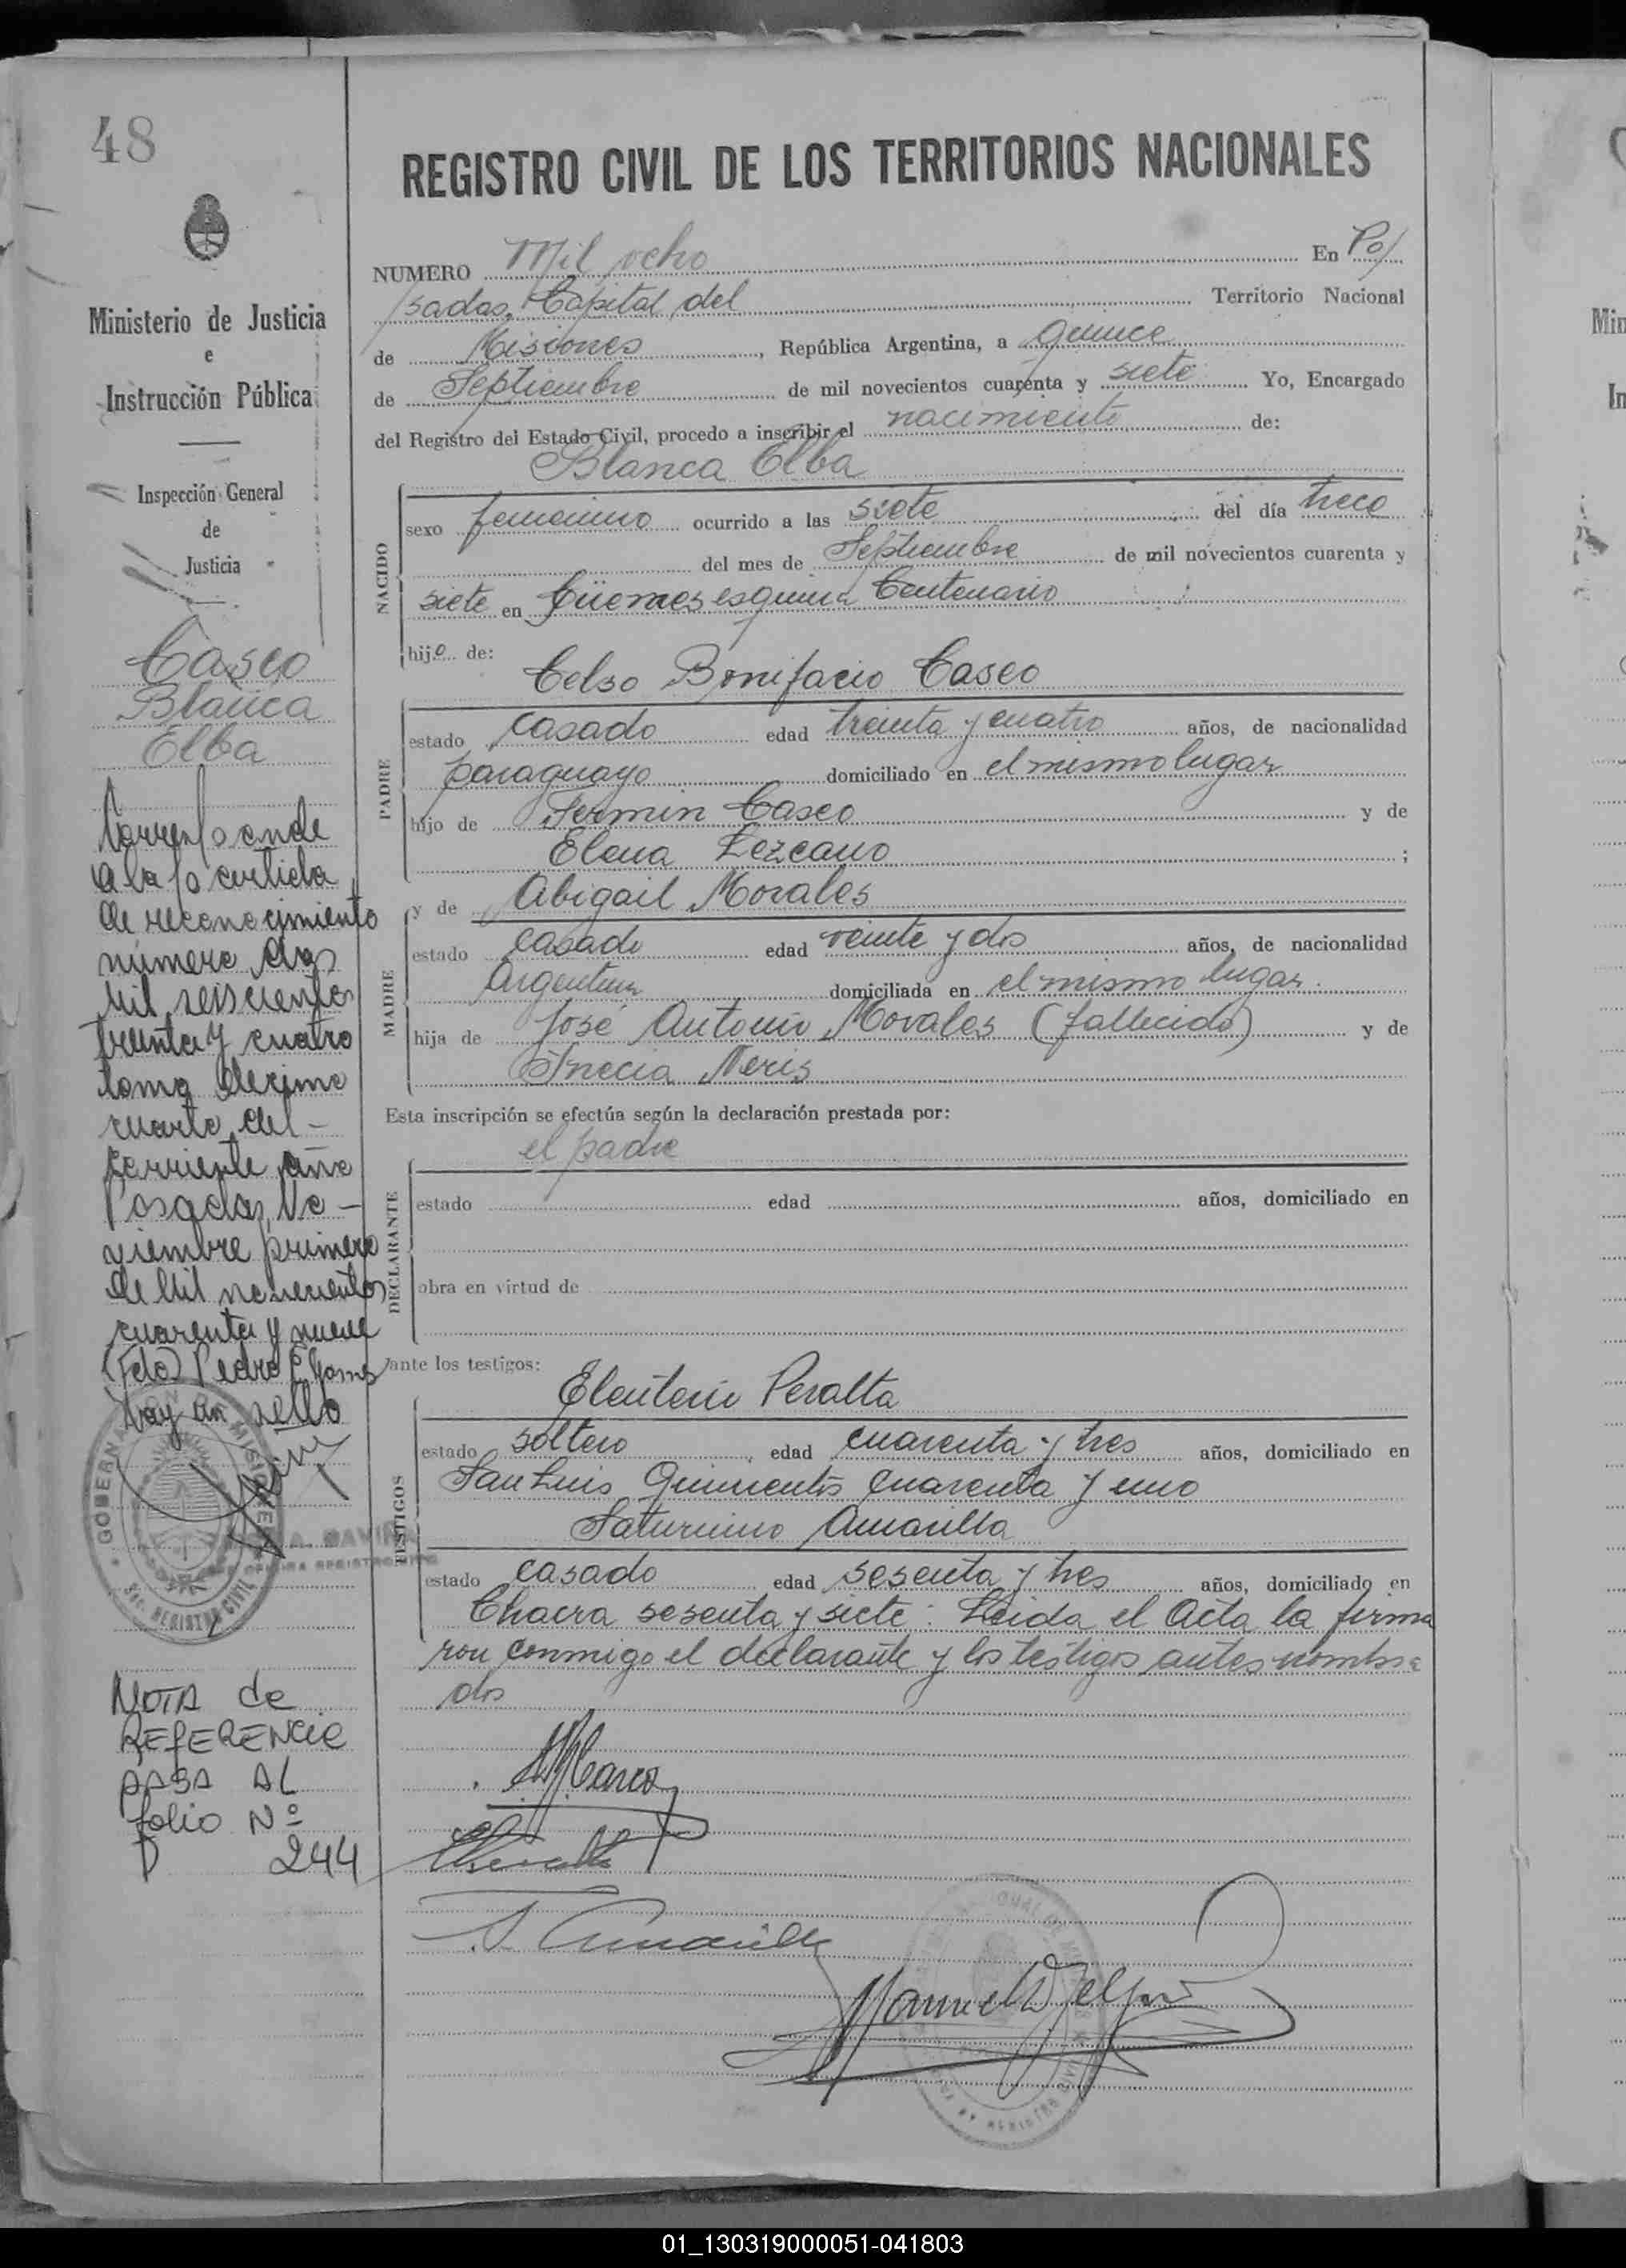 48
Ministerio de Justicia
e
Instrucción Pública
Inspección General
de
Justicia
Casco
Blanca
Elba
Corresponde
a la partida
de reconocimiento
número dos
mil seiscientos
treinta y cuatro
tomo décimo
cuarto del
corriente año
Posadas, No-
viembre primero
de mil novecientos
cuarenta y nueve
(Fdo) Pedro E.
Hay un sello
GOBERNACION MISIONES
REGISTRO CIVIL
NOTA de
REFERENCIA
PASA AL
folio Nº
D 244
REGISTRO CIVIL DE LOS TERRITORIOS NACIONALES
NUMERO Mil ocho En Po/
sadas, Capital del Territorio Nacional
de Misiones, República Argentina, a quince
de Septiembre de mil novecientos cuarenta y siete Yo, Encargado
del Registro del Estado Civil, procedo a inscribir el nacimiento de:
Blanca Elba
NACIDO
sexo femenino ocurrido a las siete del día trece
del mes de Septiembre de mil novecientos cuarenta y
siete en Güemes esquina Centenario
hija de:
Celso Bonifacio Casco
PADRE
estado casado edad treinta y cuatro años, de nacionalidad
paraguayo domiciliado en el mismo lugar
hijo de Fermin Casco y de
Elena Lezcano ;
y de Abigail Morales
MADRE
estado casado edad veinte y dos años, de nacionalidad
Argentina domiciliada en el mismo lugar.
hija de José Antonio Morales (fallecido) y de
Neris
Esta inscripción se efectúa según la declaración prestada por:
el padre
DECLARANTE
estado edad años, domiciliado en
obra en virtud de
ante los testigos:
Eleuterio Peralta
TESTIGOS
estado soltero, edad cuarenta y tres años, domiciliado en
San Luis Quinientos cuarenta y uno
Saturnino Amarilla
estado casado edad sesenta y tres años, domiciliado en
Chacra sesenta y siete: Leida el Acta la firma
ron conmigo el declarante y los testigos antes nombra
dos
S. Amarilla
01_130319000051-041803